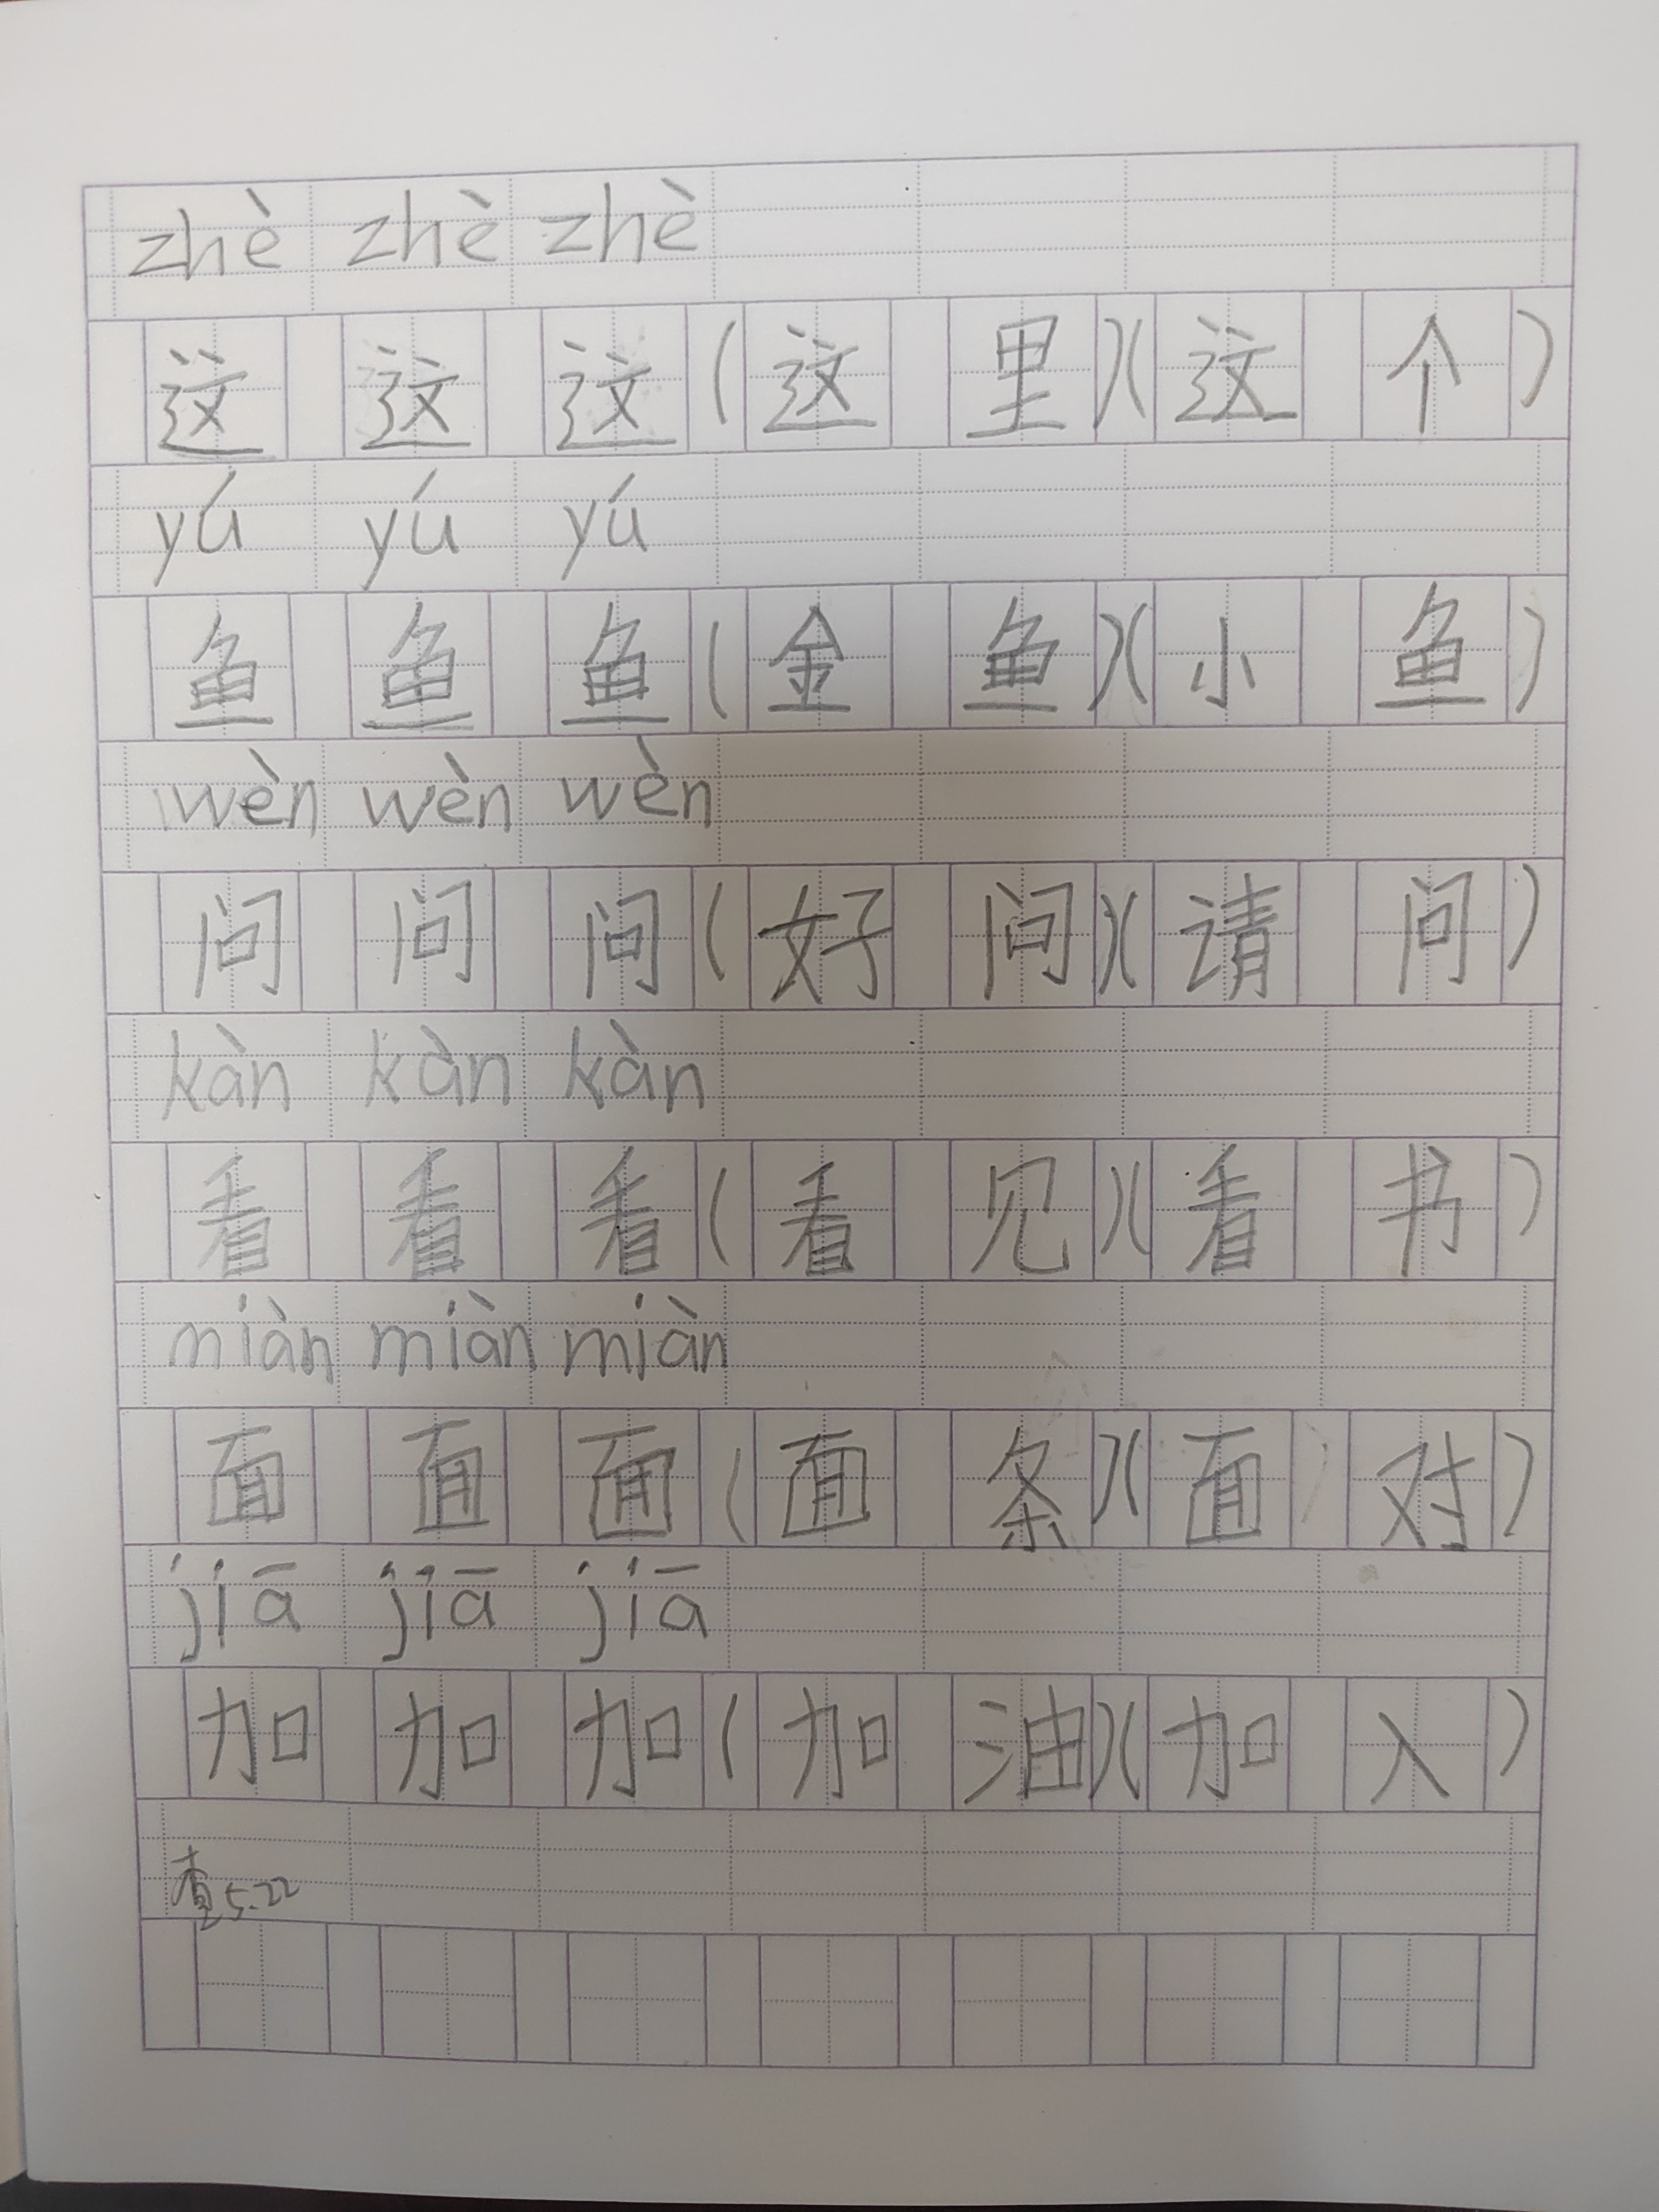 zhè zhè zhè
这 这 这 (这 里)(这 个)
yú yú yú
鱼 鱼 鱼 (金 鱼)(小 鱼)
wèn wèn wèn
问 问 问 (好 问)(请 问)
kàn kàn kàn
看 看 看 (看 见)(看 书)
miàn miàn miàn
面 面 面 (面 条)(面 对)
jiā jiā jiā
加 加 加 (加 油)(加 入)
查 5.22